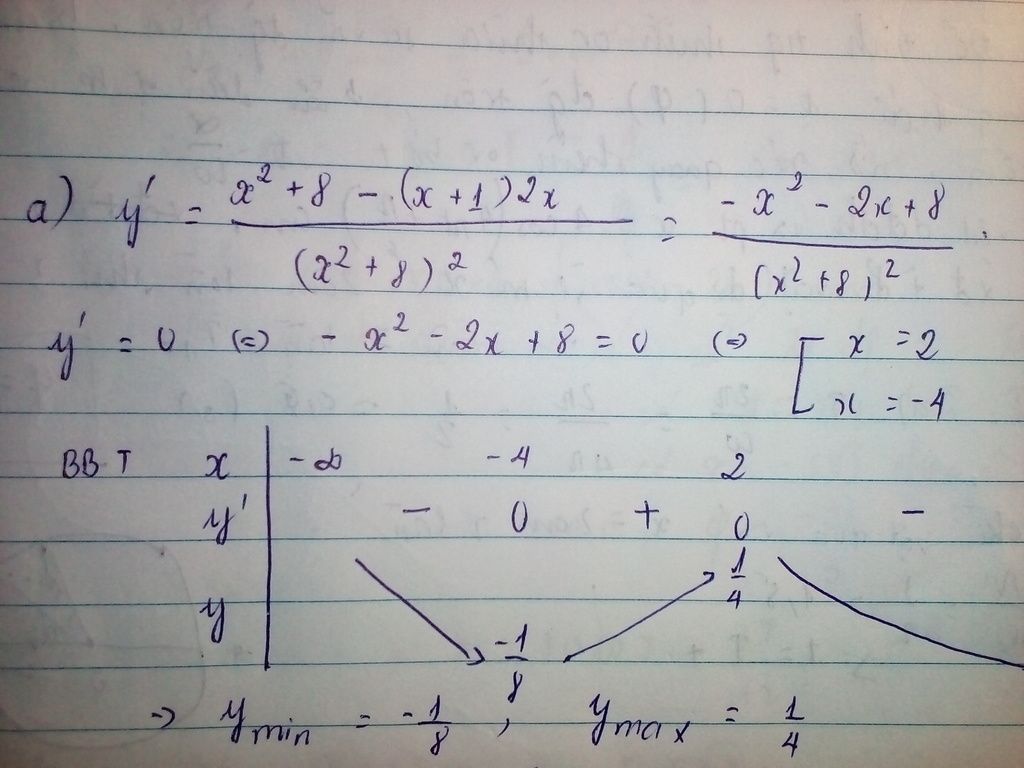 a) y' = (x² + 8 - (x + 1) 2x) / (x² + 8)² = (-x² - 2x + 8) / (x² + 8)².
y' = 0 (=) - x² - 2x + 8 = 0 (=) [ x = 2
x = -4
BBT x | -∞ -4 2
y' | - 0 + 0 -
y | ↘ -1/8 ↗ 1/4
=> y min = -1/8 , y max = 1/4